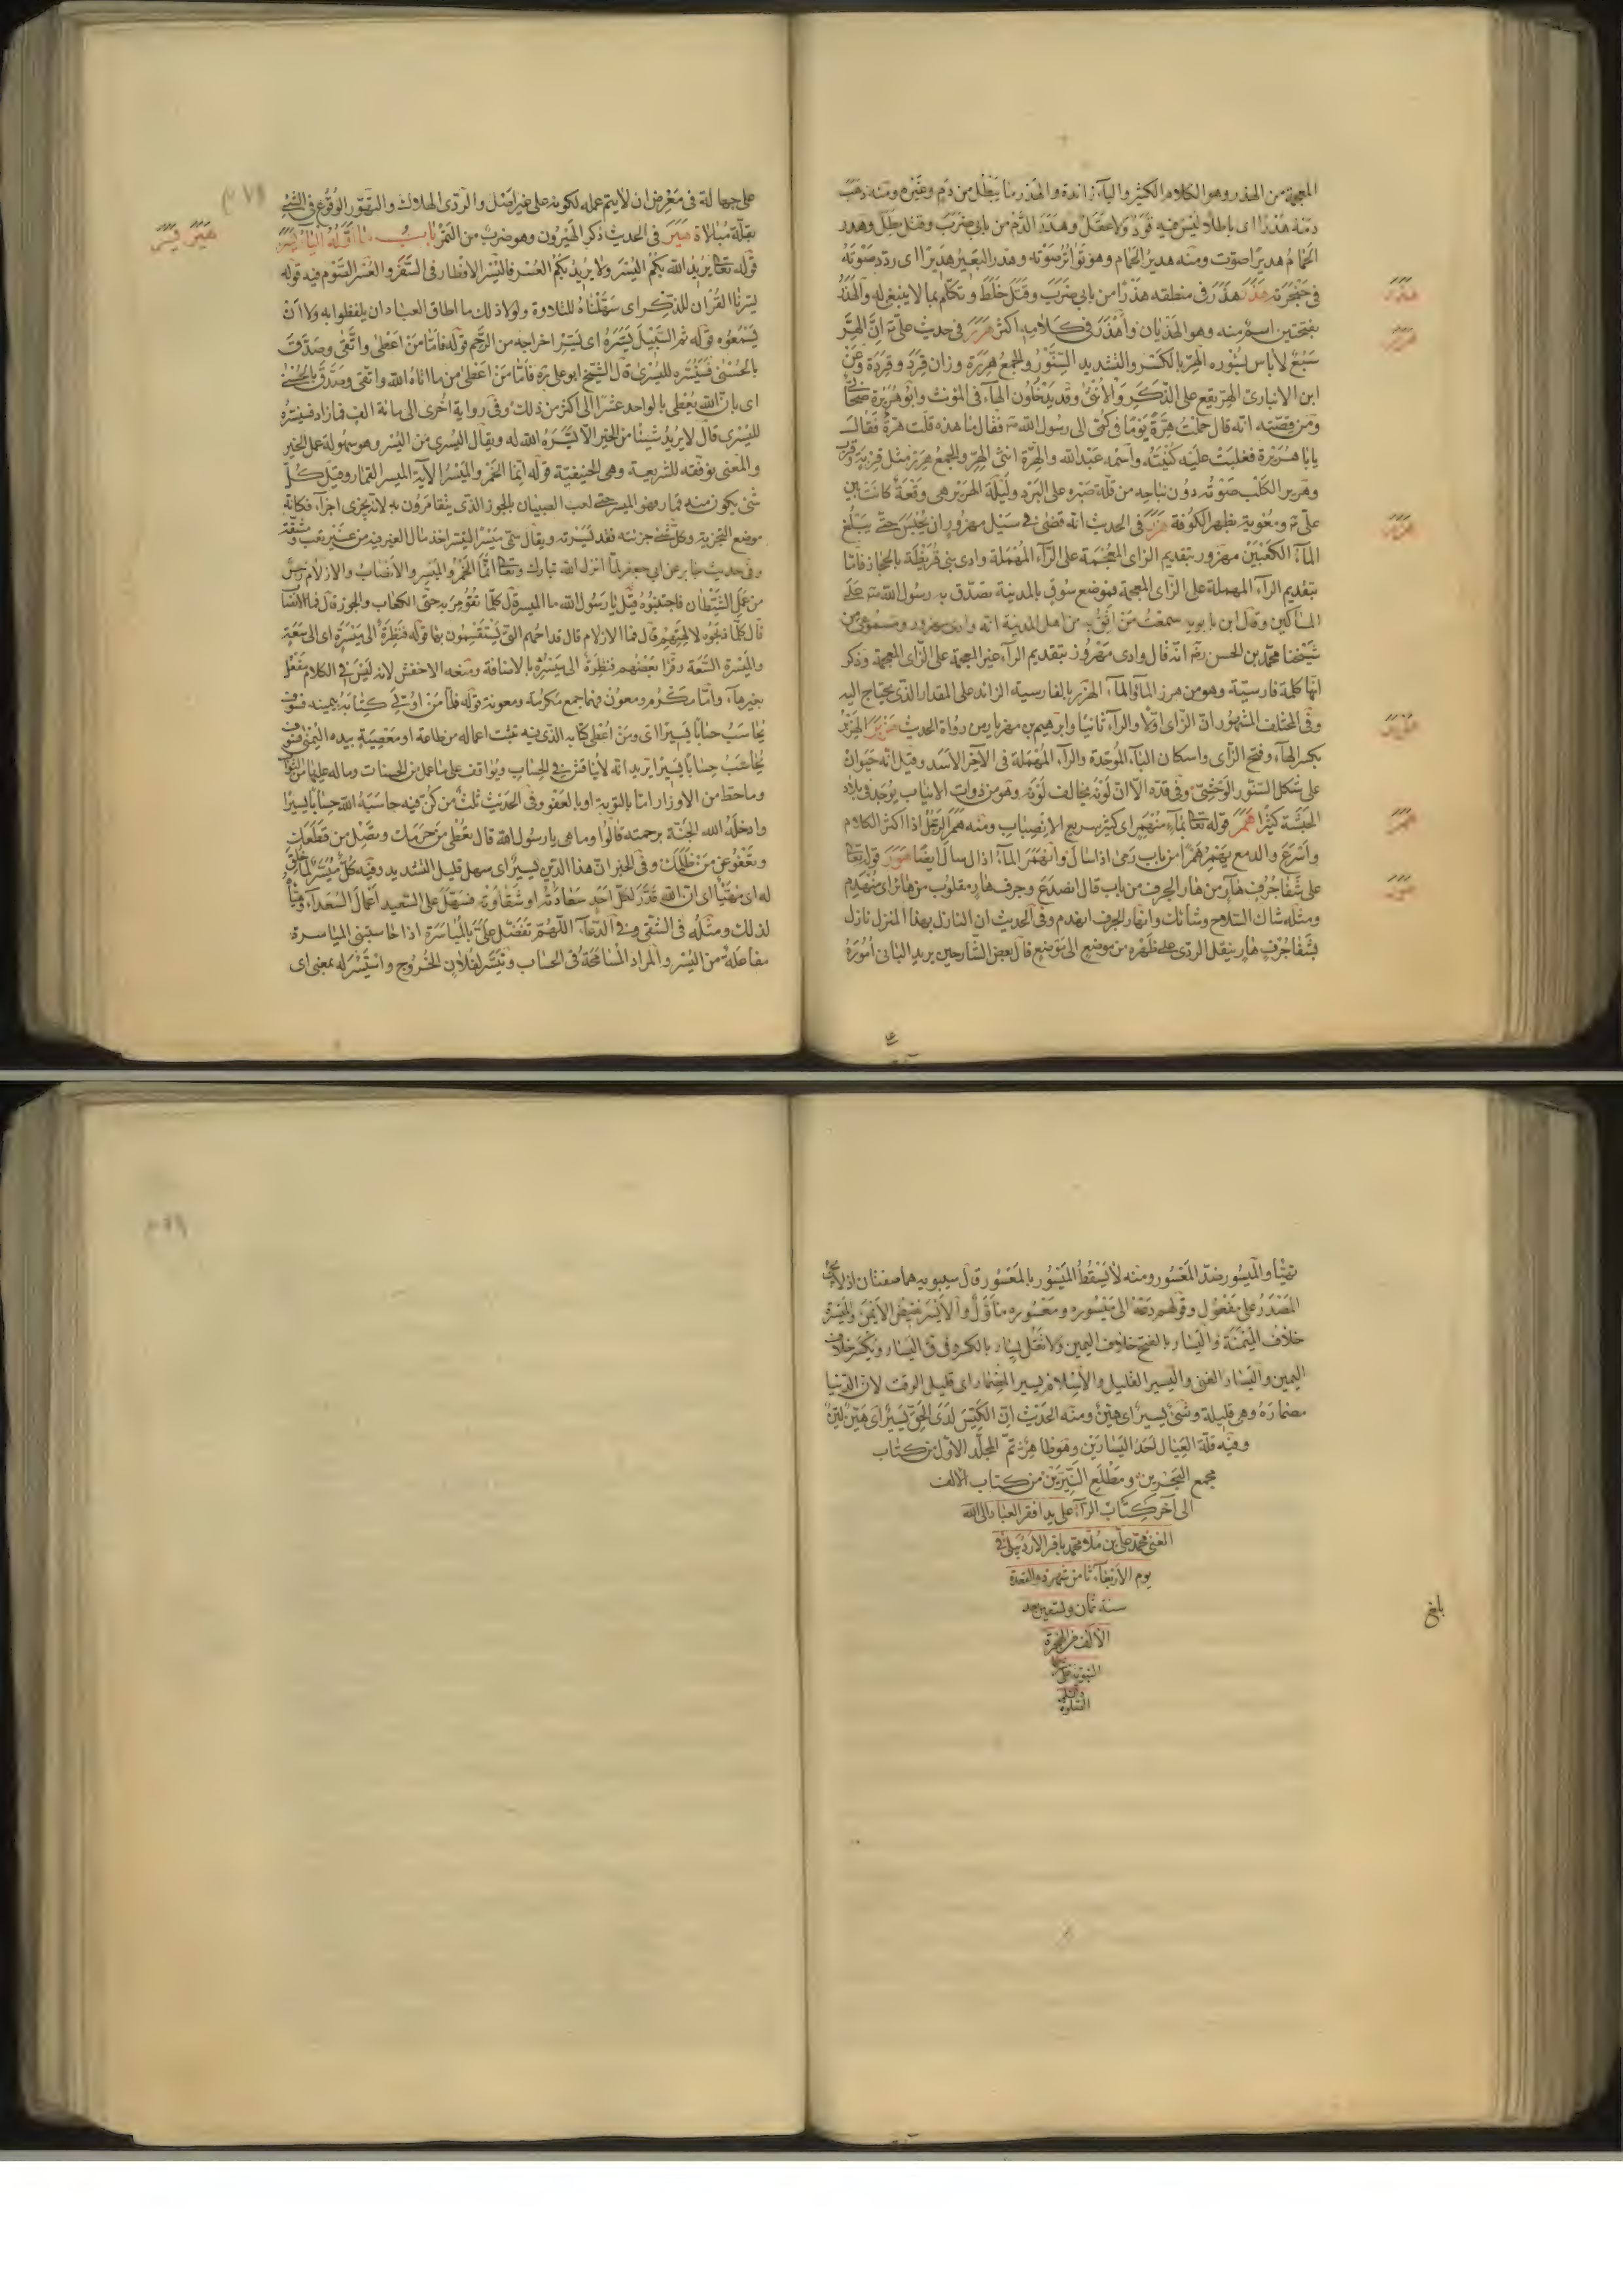 المعجمة من الهذر وهو الكلام الكثير والياء زائدة والهدر ما يبطل من دم وغيره ومنه ذهب
دمه هدرا اى باطلا ليس فيه قود ولا عقل وهدر الدم من بابى ضرب وقتل بطل وهدر
الحمام هديرا صوت ومنه هدير الحمام وهو تواتر صوته وهدر البعير هديرا اى ردد صوته
فى حنجرته هذر هذر فى منطقه هذرا من بابى ضرب وقتل خلط وتكلم بما لا ينبغى له والهذر
هذر
بفتحتين اسم منه وهو الهذيان واهذر فى كلامه اكثر هرر فى حديث على ان الهر
هرر
سبع لا باس بسؤره الهر بالكسر والتشديد السنور والجمع هررة وزان قرد وقردة وعن
ابن الانبارى الهر يقع على الذكر والانثى وقد يدخلون الهاء فى المؤنث وابو هريرة صحابى
ومن قصته انه قال حملت هرة يوما فى كمى الى رسول الله فقال ما هذه قلت هرة فقال
يا با هريرة فغلبت عليه كنيته واسمه عبد الله والهرة انثى الهر والجمع هرر مثل قربة وقرب
وهرير الكلب صوته دون نباحه من قلة صبره على البرد وليلة الهرير هى وقعة كانت بين
على ومعوية بظهر الكوفة هزر فى الحديث انه قضى فى سيل مهزور ان يحبس حتى يبلغ
هزر
الماء الكعبين مهزور بتقديم الزاى المعجمة على الراء المهملة وادى بنى قريظة بالحجاز فاما
بتقديم الراء المهملة على الزاى المعجمة فموضع سوق بالمدينة تصدق به رسول الله على
المساكين وقال ابن بابويه سمعت من اثق به من اهل المدينة انه وادى مهزور ومسموعى من
شيخنا محمد بن الحسن انه قال وادى مهروز بتقديم الراء غير المعجمة على الزاى المعجمة وذكر
انها كلمة فارسية وهو من هرز الماء والماء الهرز بالفارسية الزائد على المقدار الذى يحتاج اليه
وفى المختلف المشهور ان الزاى اولا والراء ثانيا وابرهيم بن مهزيار من رواة الحديث هزبر الهزبر
هزبر
بكسر الهاء وفتح الزاى واسكان الباء الموحدة والراء المهملة فى الآخر الاسد وقيل انه حيوان
على شكل السنور الوحشى وفى قده الا ان لونه يخالف لونه وهو من ذوات الانياب يوجد فى بلاد
الحبشة كثيرا همر قوله تعالى بماء منهمر اى كثير سريع الانصباب ومنه همر الرجل اذا اكثر الكلام
همر
واسرع والدمع يهمر همرا من باب رمى اذا سال وانهمر الماء اذا سال ايضا هور قوله تعالى
على شفا جرف هار من هار الجرف من باب قال انصدع وجرف هار مقلوب من هائر اى منهدم
هور
ومثله شاك السلاح وشائك وانهار الجرف انهدم وفى الحديث ان النازل بهذا المنزل نازل
بشفا جرف هار ينقل الردى على ظهره من موضع الى موضع قال بعض الشارحين يريد البانى اموره
على جهالة فى معرض ان لا يتم عمله لكونه على غير اصل والردى الهلاك والتهور الوقوع فى الشئ
بقلة مبالاة هير فى الحديث ذكر الهيرون وهو ضرب من التمر باب ما اوله الياء يسر
هير يسر
قوله تعالى يريد الله بكم اليسر ولا يريد بكم العسر فاليسر الافطار فى السفر والعسر الصوم فيه قوله
يسرنا القران للذكر اى سهلناه للتلاوة ولولا ذلك ما اطاق العباد ان يلفظوا به ولا ان
يسمعوه قوله ثم السبيل يسره اى يسر اخراجه من الرحم قوله فاما من اعطى واتقى وصدق
بالحسنى فسنيسره لليسرى قال الشيخ ابو على فاما من اعطى من ما اتاه الله واتقى وصدق بالحسنى
اى بان الله يعطى بالواحد عشرا الى اكثر من ذلك وفى رواية اخرى الى مائة الف فما زاد فسنيسره
لليسرى قال لا يريد شيئا من الخير الا يسره الله له ويقال اليسرى من اليسر وهو سهولة عمل الخير
والمعنى نوفقه للشريعة وهى الحنيفية قوله انما الخمر والميسر الآية الميسر القمار وقيل كل
شئ يكون منه قمار فهو الميسر حتى لعب الصبيان بالجوز الذى يتقامرون به لانه يجزى اجزاء فكانه
موضع التجزية وكل شئ جزئته فقد يسرته ويقال سمى ميسرا لتيسر اخذ مال الغير فيه من غير تعب ومشقة
وفى حديث جابر عن ابى جعفر لما انزل الله تبارك وتعالى انما الخمر والميسر والانصاب والازلام رجس
من عمل الشيطان فاجتنبوه قيل يا رسول الله ما الميسر قال كلما تقومر به حتى الكعاب والجوز قال فما الانصاب
قال كلما ذبحوه لالهتهم قال فما الازلام قال قداحهم التى يستقسمون بها قوله فنظرة الى ميسرة اى الى سعة
والميسرة السعة وقرأ بعضهم فنظرة الى ميسره بالاضافة ومنعه الاخفش لانه ليس فى الكلام مفعل
بغير هاء واما مكرم ومعون فهما جمع مكرمة ومعونة قوله فاما من اوتى كتابه بيمينه فسوف
يحاسب حسابا يسيرا اى ومن اعطى كتابه الذى فيه تثبت اعماله من طاعة او معصية بيده اليمنى فسوف
يحاسب حسابا يسيرا يريد انه لا يناقش فى الحساب ويواقف على ما عمل من الحسنات وماله عليها من الثواب
وما حط من الاوزار اما بالتوبة او بالعفو وفى الحديث ثلث من كن فيه حاسبه الله حسابا يسيرا
وادخله الله الجنة برحمته قالوا وما هى يا رسول الله قال تعطى من حرمك وتصل من قطعك
وتعفو عن من ظلمك وفى الخبر ان هذا الدين يسير اى سهل قليل التشديد وفيه كل ميسر لما خلق
له اى مهيئا اى ان الله قدر لكل احد سعادته او شقاوته فسهل على السعيد اعمال السعداء وهيأه
لذلك ومثله فى الشقى وفى الدعاء اللهم تفضل على بالمياسرة اذا حاسبتنى المياسرة
مفاعلة من اليسر والمراد المسامحة فى الحساب وتيسر لفلان الخروج واستيسر له بمعنى اى
تهيأ والميسور ضد المعسور ومنه لا يسقط الميسور بالمعسور قال سيبويه هما صفتان اذ لا يجئ
المصدر على مفعول وقولهم دعه الى ميسوره ومعسوره متأول والايسر نقيض الايمن والميسرة
خلاف الميمنة واليسار بالفتح خلاف اليمين ولا تقل يسار بالكسر وفى ق اليسار ويكسر خلاف
اليمين واليسار الغنى واليسير القليل والاسلام يسير المضمار اى قليل الوقت لان الدنيا
مضماره وهى قليلة وشئ يسير اى هين ومنه الحديث ان الكيس لدى الحق يسير اى هين لين
وفيه قلة العيال احد اليسارين وهو ظاهر تم المجلد الاول من كتاب
مجمع البحرين ومطلع النيرين من كتاب الالف
الى آخر كتاب الراء على يد افقر العباد الى الله
الغنى محمد على بن ملا محمد باقر الاردبيلى فى
يوم الاربعاء ثامن شهر ذو القعدة
سنة ثمان وتسعين بعد
الالف من الهجرة
النبوية على
الصلوة
بلغ